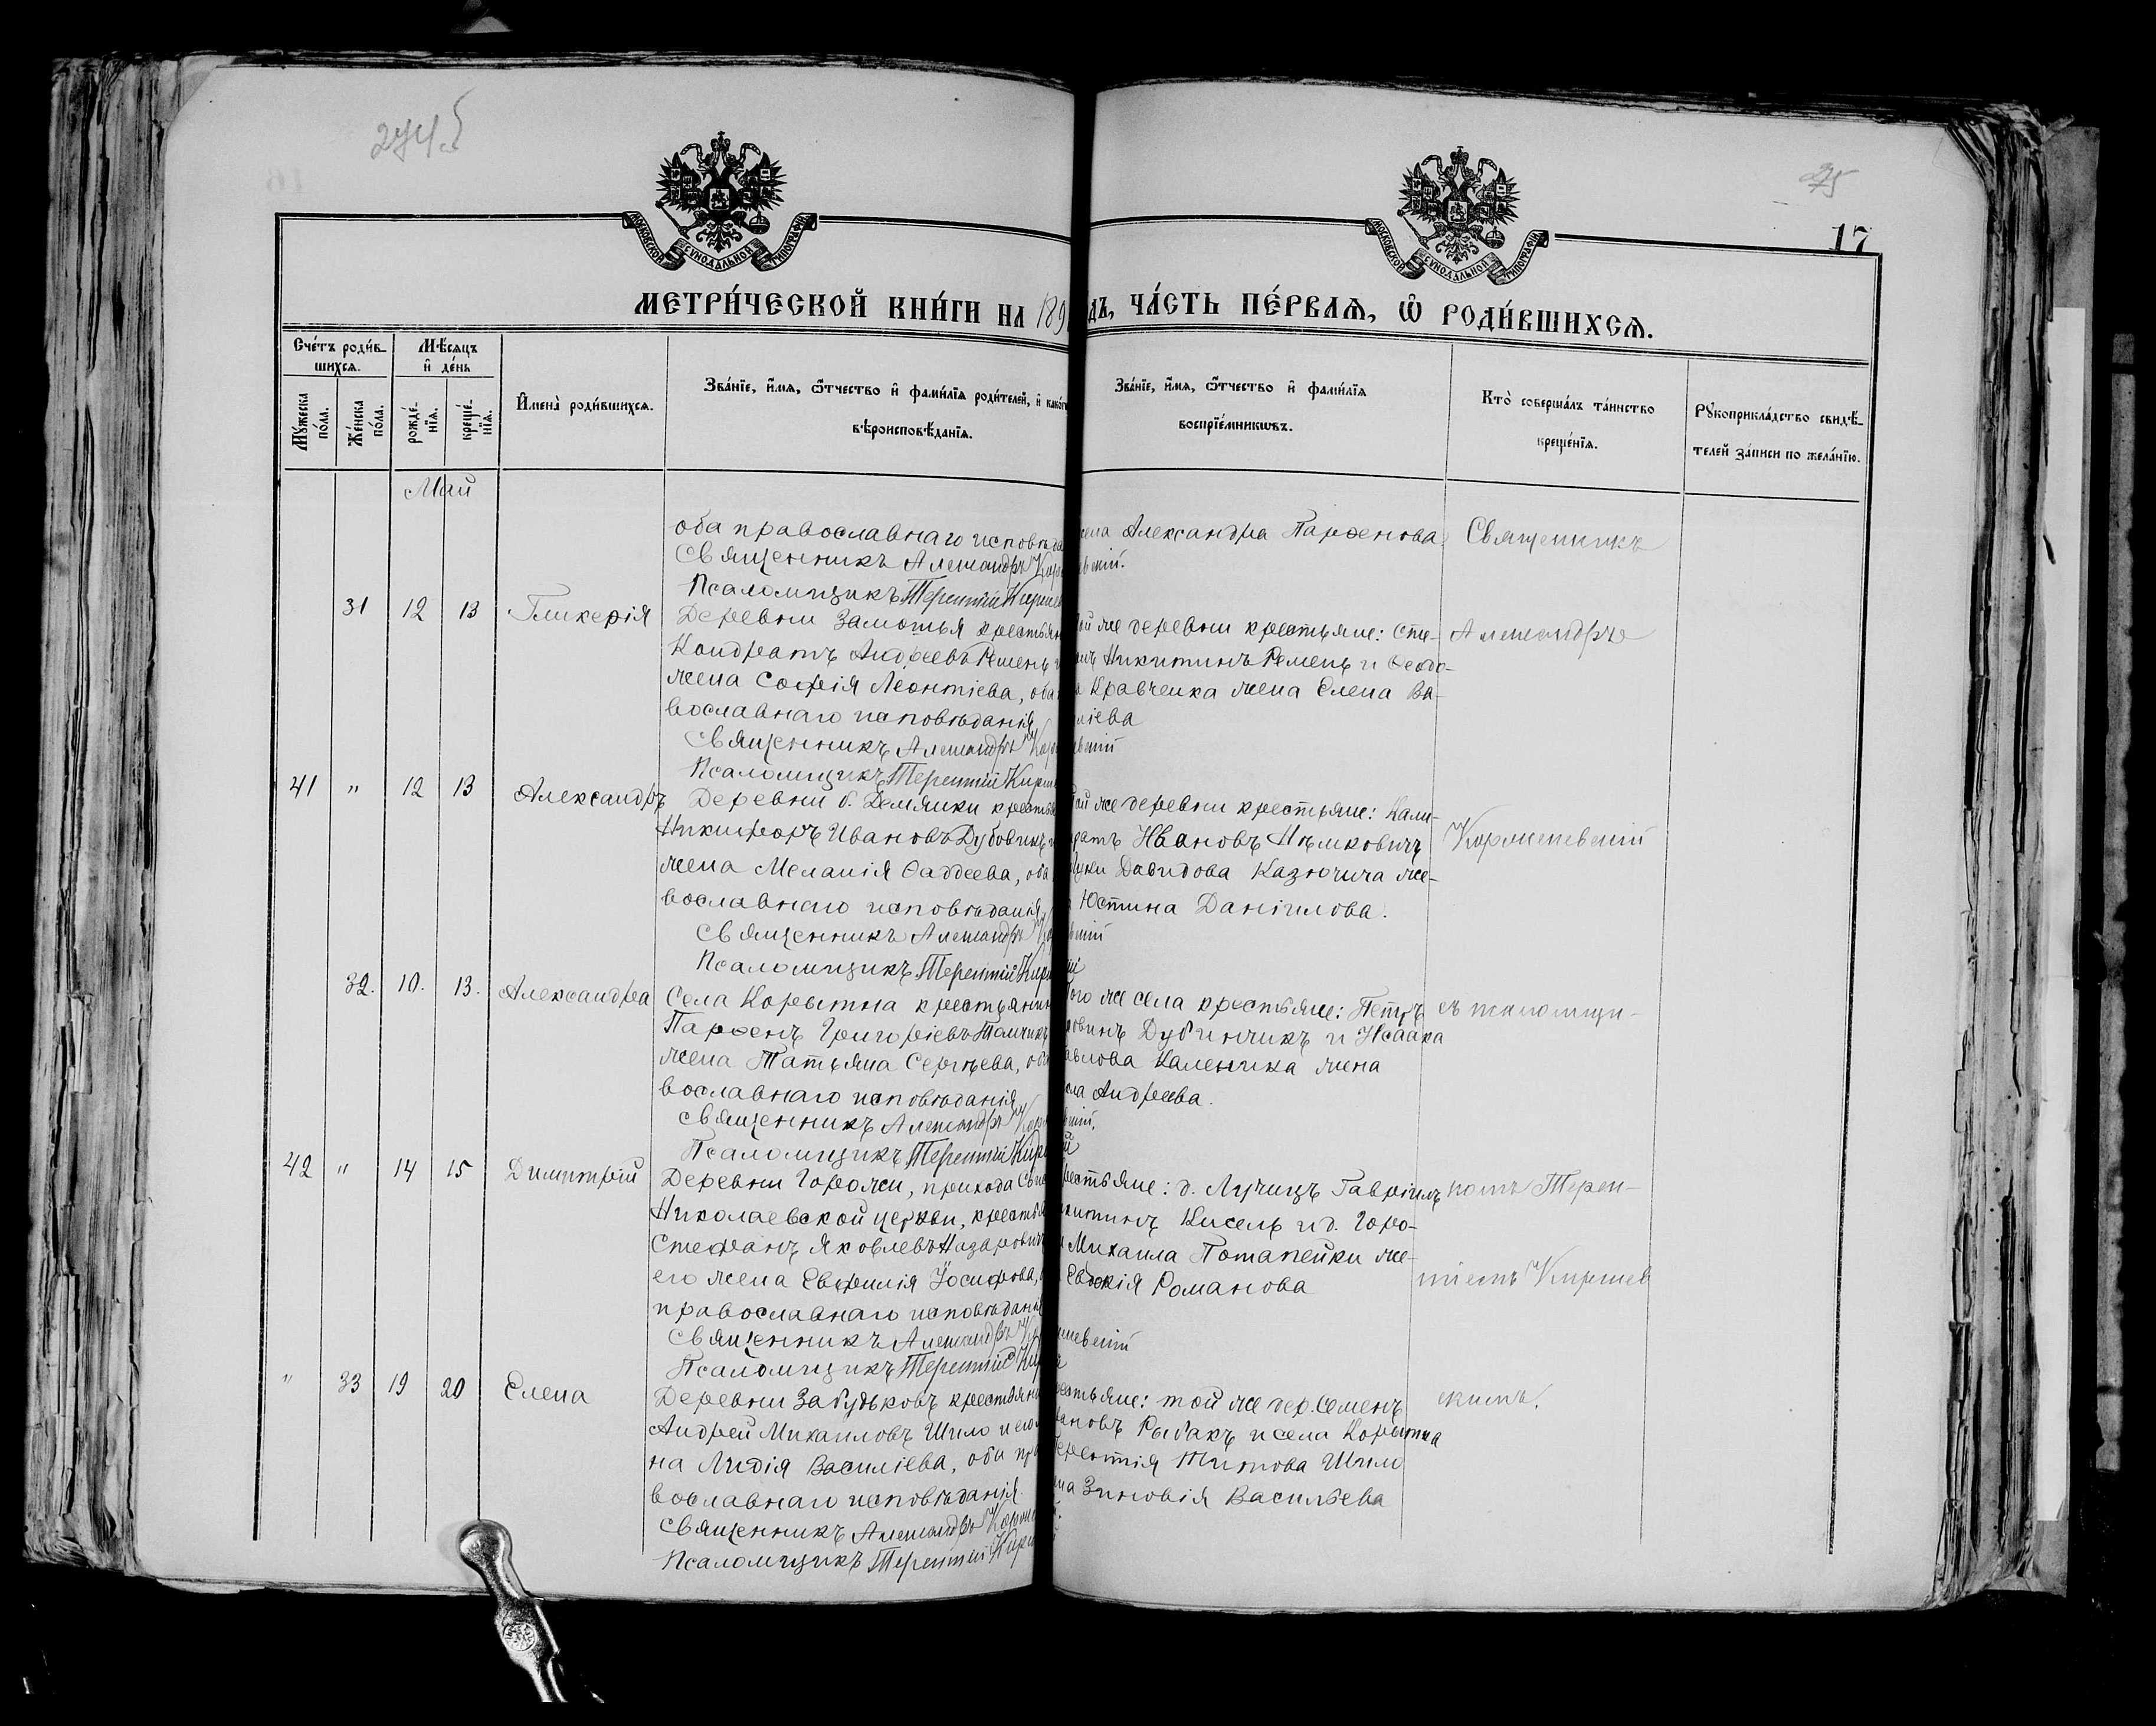 274б
275
17
МОСКОВСКОЙ СУНОДАЛЬНОЙ ТИПОГРАФІИ
МОСКОВСКОЙ СУНОДАЛЬНОЙ ТИПОГРАФІИ
МЕТРИ́ЧЕСКОЙ КНИ́ГИ НА 189
дъ, ЧА́СТЬ ПЕ́РВАѦ, Ѡ҆ РОДИ́ВШИХСѦ.
Сче́тъ роди́в-
шихсѧ.
Мѣ́сѧцъ
и҆ де́нь
Мꙋ́жеска по́ла.
Же́нска по́ла.
рожде́-
нїѧ.
креще́-
нїѧ.
И҆мена̀ роди́вшихсѧ.
Зва́нїе, и҆́мѧ, ѻ҆́тчество и҆ фами́лїѧ роди́телей, и҆ како́г
вѣроисповѣ́данїѧ.
Зва́нїе, и҆́мѧ, ѻ҆́тчество и҆ фами́лїѧ
воспрїе́мникѡвъ.
Кто̀ соверша́лъ та́инство
креще́нїѧ.
Рꙋкоприкла́дство свидѣ́-
телей за́писи по жела́нїю.
Май
оба православнаго исповѣда
Священникъ Александръ Кор
Псаломщикъ Терентій Кирше
жена Александра Парѳенова
вскій.
Священникъ
31 12 13 Гликерія
Деревни Замостья крестьян
Кондратъ Андреевъ Ремень и
жена Софія Леонтіева, оба
вославнаго исповѣданія
Священникъ Александръ Кор
Псаломщикъ Терентій Кирш
той же деревни крестьяне: Сте-
Никитинъ Ремень и Ѳеодо-
Кравченка жена Елена Ва-
иліева
евскій
Александръ
41 " 12 13 Александръ
Деревни б. Демянки крестья
Никифоръ Ивановъ Дубовикъ и
жена Меланія Ѳаддеева, оба
вославнаго исповѣданія
Священникъ Александръ Кор
Псаломщикъ Терентій Кирш
той же деревни крестьяне: Кали-
стратъ Ивановъ Нѣмковичъ
Луки Давидова Казючича же-
Юстина Даніилова.
вскій
Коржепевскій
32. 10. 13. Александра
Села Корытна крестьянин
Парѳенъ Григоріевъ Талчикъ
жена Татьяна Сергѣева, оба
вославнаго исповѣданія
Священникъ Александръ Кор
Псаломщикъ Терентій Кирш
того же села крестьяне: Петръ
Дубинчикъ и Исаака
авлова Каленика жена
Андреева.
вскій.
съ псаломщи-
42 " 14 15 Димитрій
Деревни Горожи, прихода Сви
Николаевской церкви, крестья
Стефанъ Яковлевъ Назарович
его жена Евфимія Іосифова,
православнаго исповѣдані
Священникъ Александръ Кор
Псаломщикъ Терентій Кир
рестьяне: д. Лучицъ Гавріилъ
икитинъ Кисель и д. Горо-
Михаила Потапейки же-
Евдокія Романова
певскій
комъ Терен-
тіемъ Киршев
" 33 19 20 Елена
Деревни Забудьковъ крестьянин
Андрей Михаиловъ Шило и его
на Лидія Василіева, оба пра
вославнаго исповѣданія
Священникъ Александръ Корже
Псаломщикъ Терентій Кирш
рестьяне: той же дер. Семенъ
вановъ Рыбакъ и села Корытна
Терентія Титова Шило
Зиновія Васильева
скимъ.